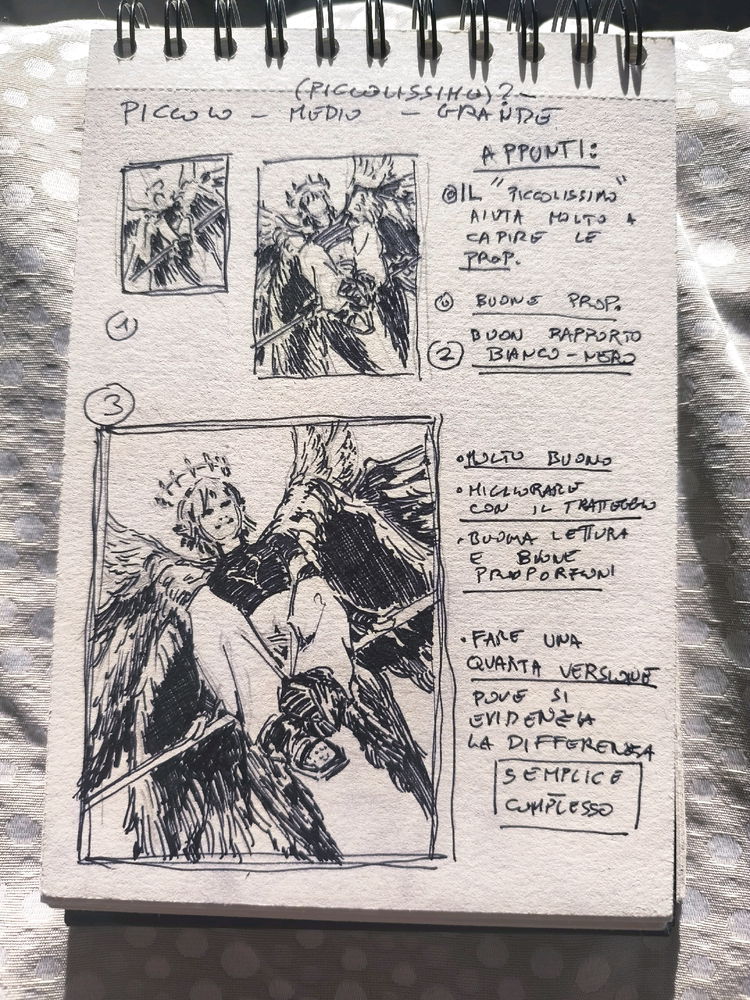 (PICCOLISSIMO)?
PICCOLO - MEDIO - GRANDE
APPUNTI:
IL "PICCOLISSIMO"
AIUTA MOLTO A
CAPIRE LE
PROP.
BUONE PROP.
BUON RAPPORTO
BIANCO-NERO
1
2
3
• MOLTO BUONO
• MIGLIORARE
CON IL TRATTEGGIO
• BUONA LETTURA
E BUONE
PROPORZIONI
• FARE UNA
QUARTA VERSIONE
DOVE SI
EVIDENZIA
LA DIFFERENZA
SEMPLICE
COMPLESSO